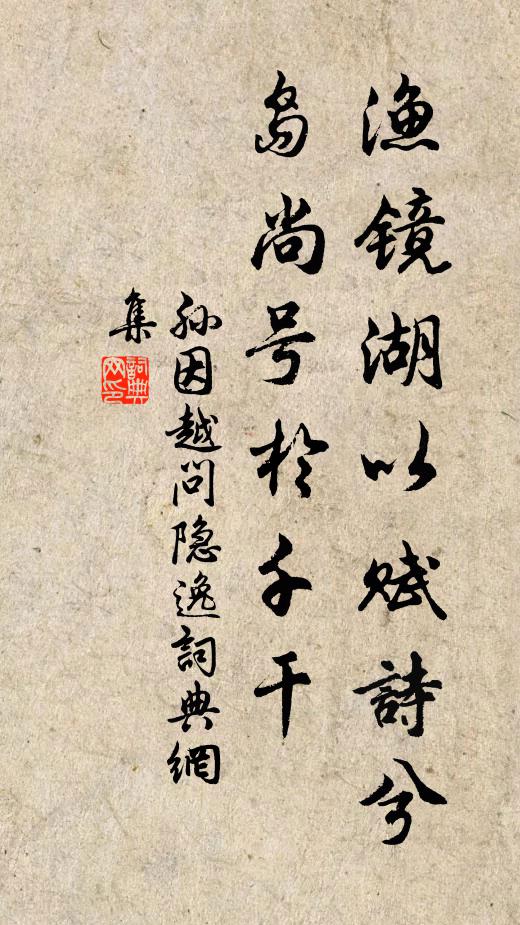 渔镜湖以赋詩兮
岛尚号於千干
孙因越问隐逸詞典網
集
詞典
网印